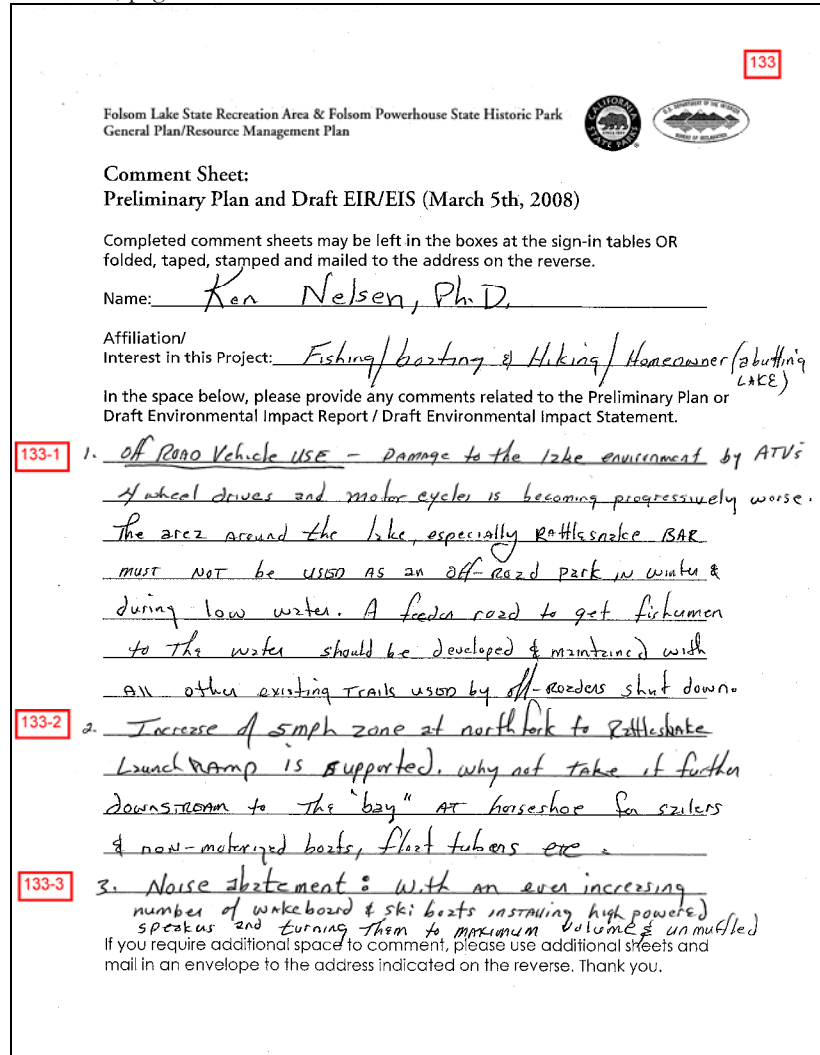 133
Folsom Lake State Recreation Area & Folsom Powerhouse State Historic Park
General Plan/Resource Management Plan
CALIFORNIA
STATE PARKS
U.S. DEPARTMENT OF THE INTERIOR
BUREAU OF RECLAMATION
Comment Sheet:
Preliminary Plan and Draft EIR/EIS (March 5th, 2008)
Completed comment sheets may be left in the boxes at the sign-in tables OR
folded, taped, stamped and mailed to the address on the reverse.
Name: Ken Nelsen, Ph.D.
Affiliation/
Interest in this Project: Fishing/boating & Hiking/Homeowner (abutting
LAKE)
In the space below, please provide any comments related to the Preliminary Plan or
Draft Environmental Impact Report / Draft Environmental Impact Statement.
133-1 1. Off ROAD Vehicle USE - DAMAGE to the lake environment by ATV's
4 wheel drives and motor cycles is becoming progressively worse.
The area around the lake, especially Rattlesnake BAR
MUST NOT be USED AS an off-road park IN winter &
during low water. A feeder road to get fishermen
to The water should be developed & maintained with
All other existing TRAILS USED by off-ROADERS shut down.
133-2 2. Increase of 5mph zone at north fork to Rattlesnake
Launch RAMP is supported. why not TAKE it further
downSTREAM to The "bay" AT horseshoe for sailers
& non-motorized boats, float tubers etc.
133-3 3. Noise abatement: With AN ever increasing
number of wakeboard & ski boats INSTALLING high powered
speakers and turning Them to MAXIMUM volume & unmuffled
If you require additional space to comment, please use additional sheets and
mail in an envelope to the address indicated on the reverse. Thank you.